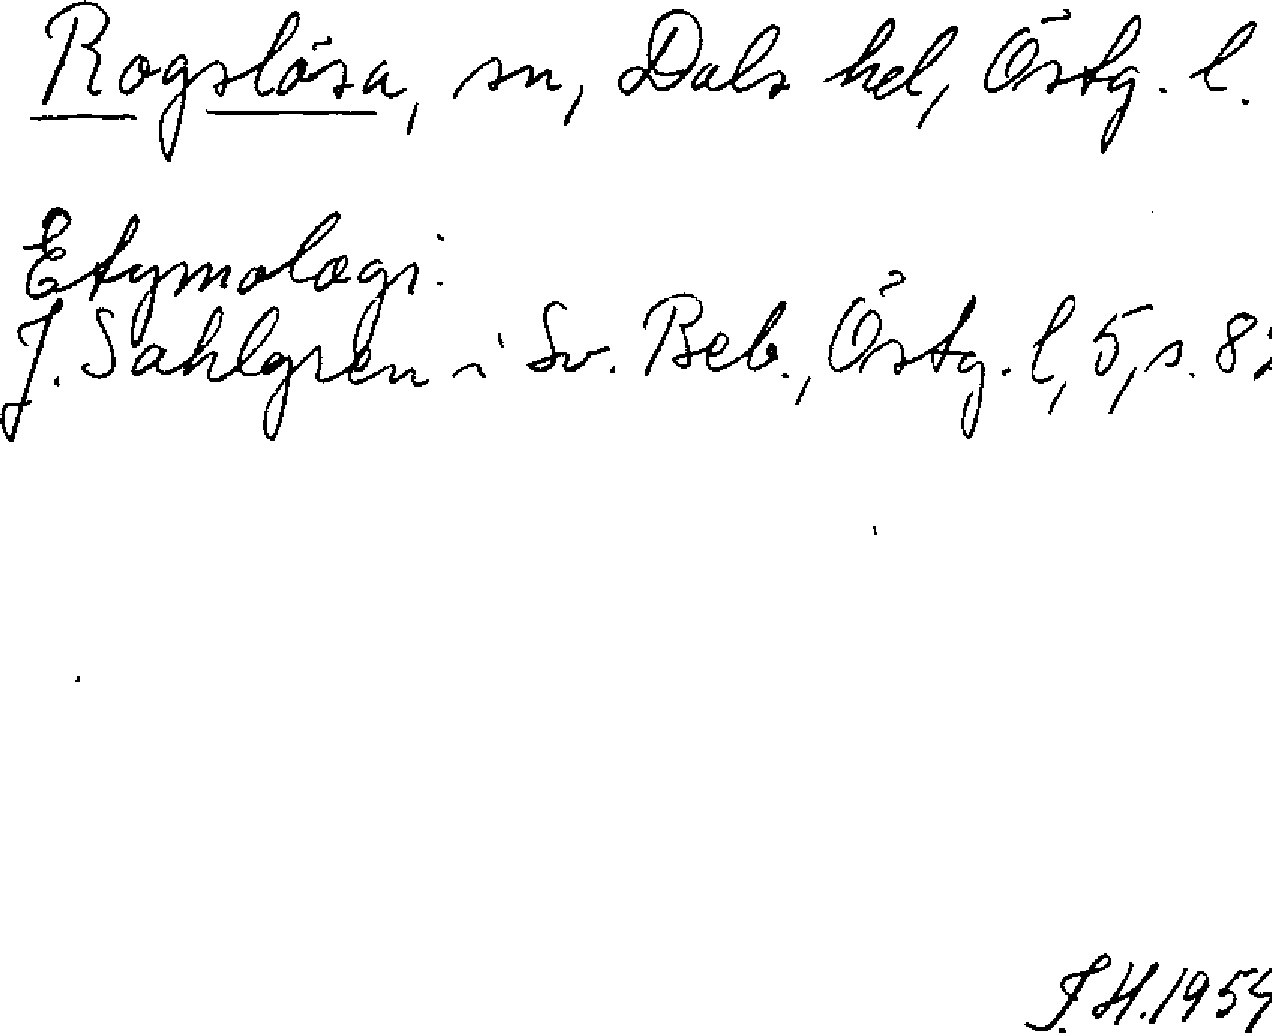 Rogslösa, sn, Dals hd, Östg. l.
Etymologi:
J. Sahlgren i Sv. Beb., Östg. l, 5, s. 82
J.H. 1954